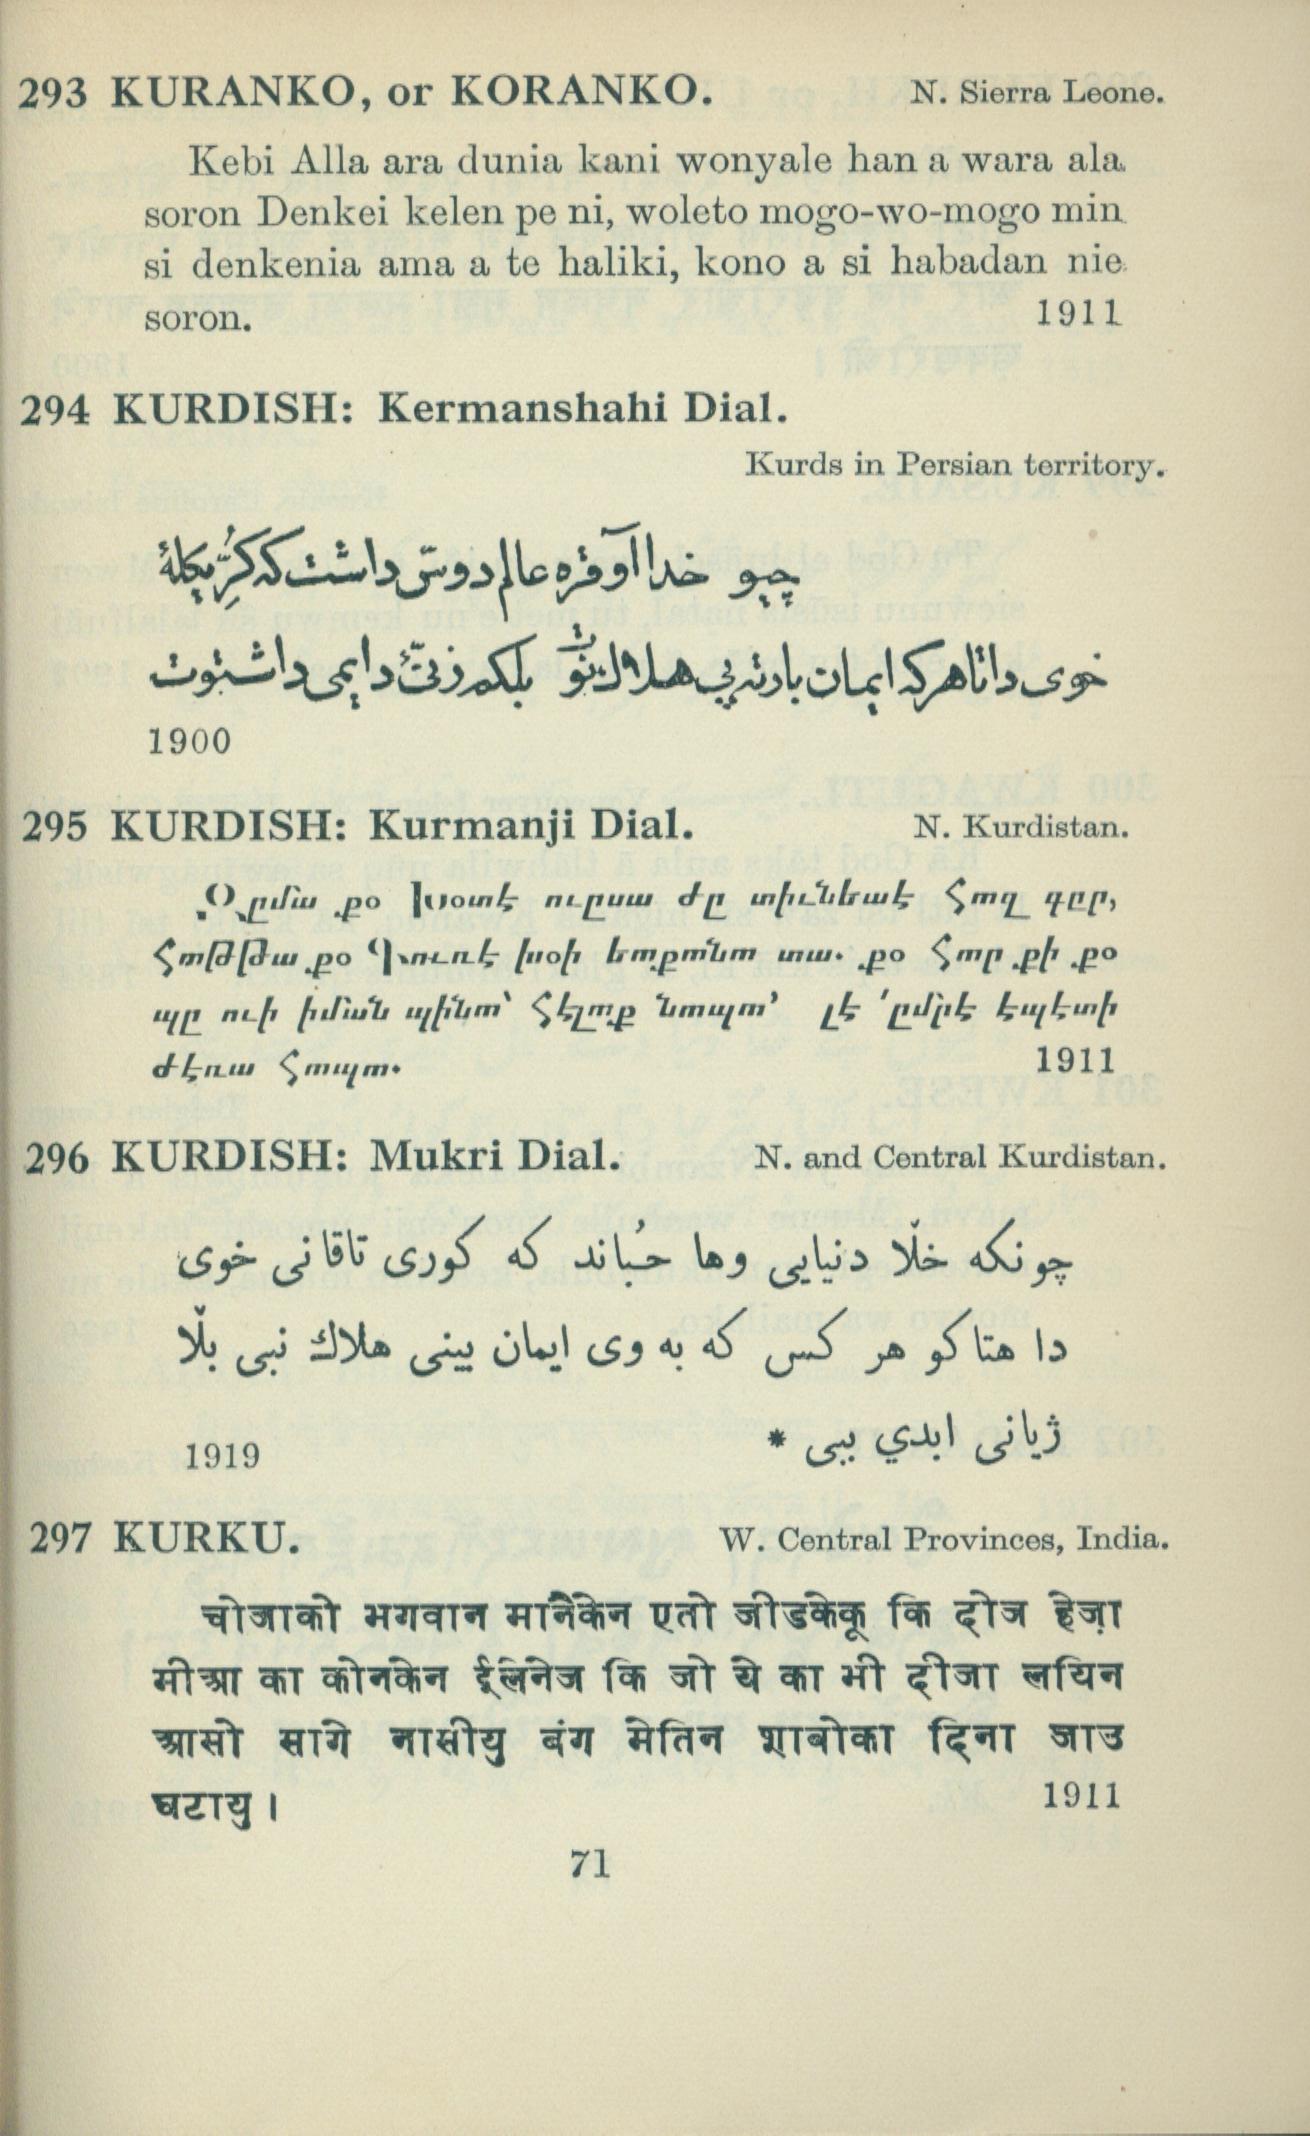 293 KURANKO, or KORANKO. N. Sierra Leone.
Kebi Alla ara dunia kani wonyale han a wara ala
soron Denkei kelen pe ni, woleto mogo-wo-mogo min
si denkenia ama a te haliki, kono a si habadan nie
soron. 1911
294 KURDISH: Kermanshahi Dial.
Kurds in Persian territory.
چیو خدا آوقره عالم دوس داشت که کُرِّ یکلهٔ
خوی داتا هرکه ایمان باد پی هلال بلکم دایمی داشتوت
1900
295 KURDISH: Kurmanji Dial. N. Kurdistan.
քօ Խօտէ ուըսա ժը տիւնեաէ Հոզ գըր,
քօ խօի տա. քօ Հոր քի քօ
պը ուի իման պինո՝ Հէլոք նոպո՚ լէ ՚ըմրէ էպէտի
ժէռա Հոպո. 1911
296 KURDISH: Mukri Dial. N. and Central Kurdistan.
چونکه خلّا دنیایی وها حُباند که کوری تاقانی خوی
دا هتاکو هر کس که به وی ایمان بینی هلاك نبی بلّا
ژیانی ابدي ببی *
1919
297 KURKU. W. Central Provinces, India.
चोजाको भगवान मानैकेन एतो जीडकेकू कि दोज हेज़ा
मीआ का कोनकेन ईलेनेज कि जो ये का भी दीजा लयिन
आसो सागे नासीयु बंग मेतिन शाबोका दिना जाउ
घटायु । 1911
71